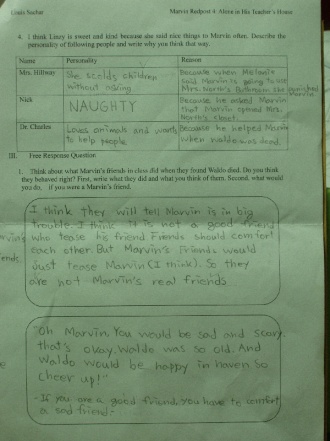 Louis Sachar Marvin Redpost 4: Alone in His Teacher's House
4. I think Linzy is sweet and kind because she said nice things to Marvin often. Describe the
personality of following people and write why you think that way.
Name Personality Reason
Mrs. Hillway She scolds children
without asking.
Because when Melanie
said Marvin is going to use
Mrs. North's Bathroom she punished
Marvin
Nick NAUGHTY
Because he asked Marvin
that Marvin
North's closet.
Dr. Charles Loves animals and wants
to help people.
Because he helped Marvin
when waldo was dead.
III. Free Response Question
1. Think about what Marvin's friends in class did when they found Waldo died. Do you think
they behaved right? First, write what they did and what you think of them. Second, what would
you do, if you were a Marvin's friend.
I think they will tell Marvin is in big
trouble. I think it is not a good friend
who tease his friend. Friends should comfort
each other. But Marvin's friends would
Just tease Marvin (I think). So they
are not Marvin's real friends.
"Oh Marvin. You would be sad and scary.
that's okay. Waldo was so old. And
Waldo would be happy in haven. So
cheer up!"
- If you are a good friend, you have to comfort
a sad friend.-